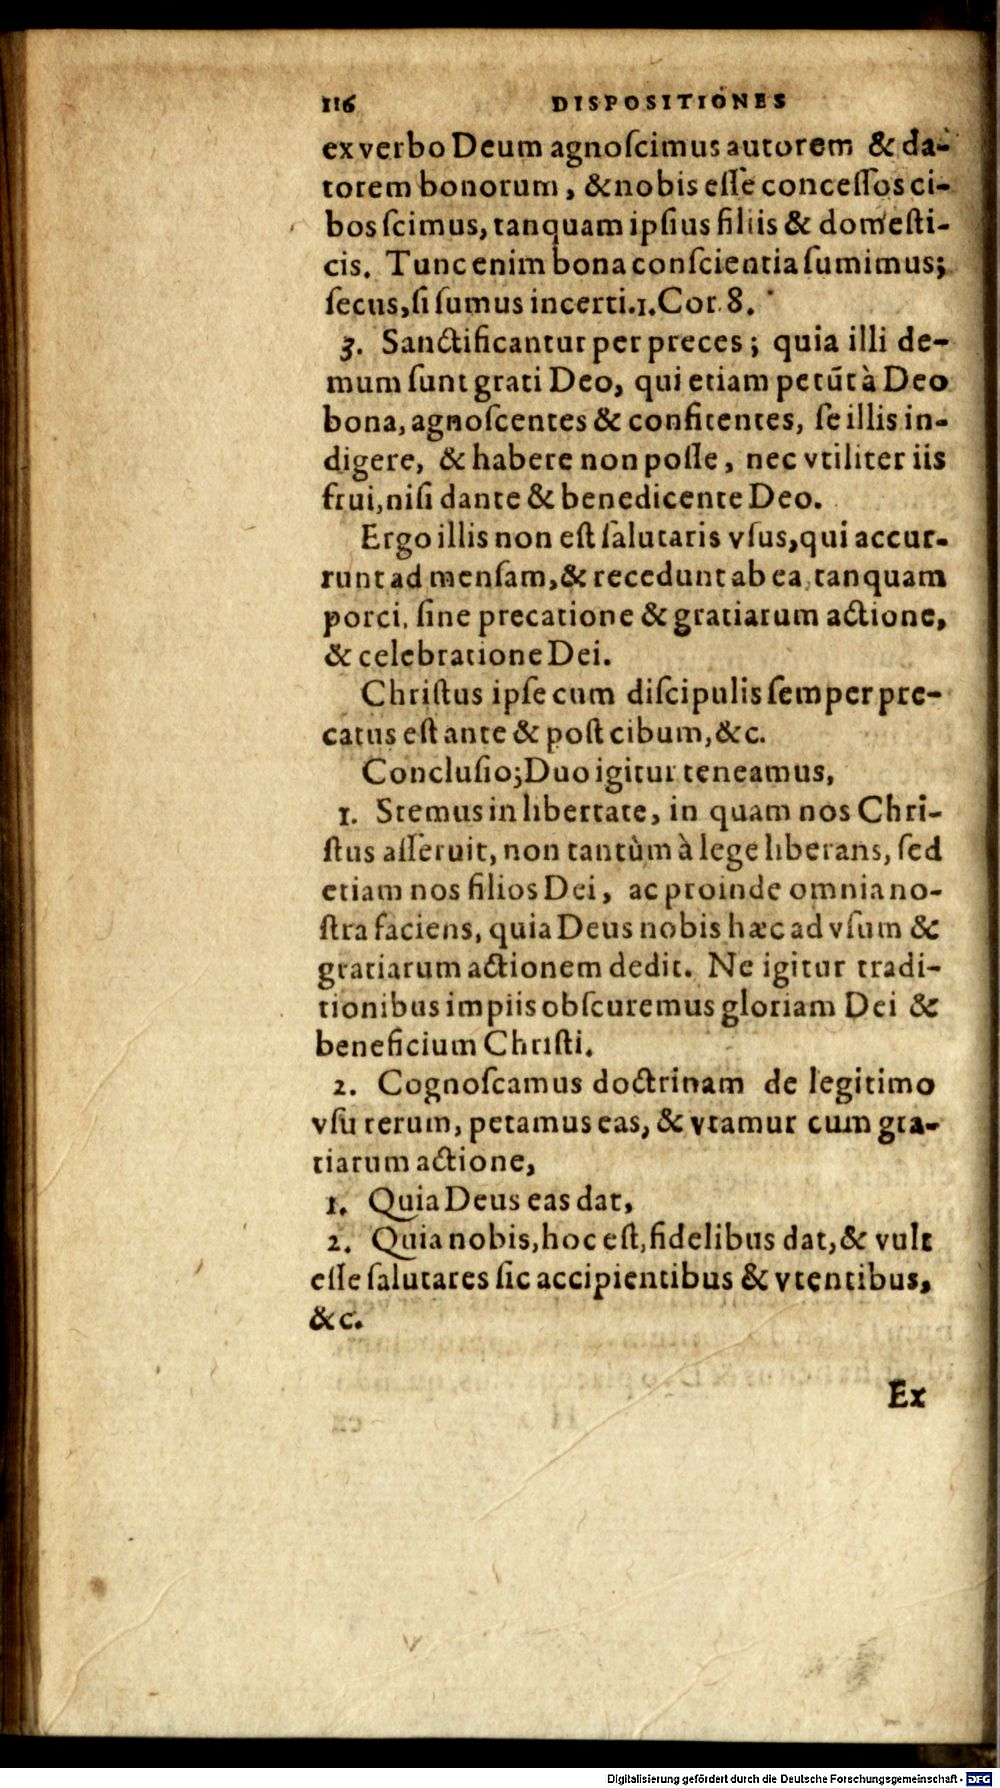 116 DISPOSITIONES
ex verbo Deum agnoſcimus autorem & da-
torem bonorum, & nobis eſſe conceſſos ci-
bos ſcimus, tanquam ipſius filiis & domeſti-
cis. Tunc enim bona conſcientia ſumimus;
ſecus, ſi ſumus incerti. 1. Cor. 8.
3. Sanctificantur per preces; quia illi de-
mum ſunt grati Deo, qui etiam petũt à Deo
bona, agnoſcentes & confitentes, ſe illis in-
digere, & habere non poſſe, nec vtiliter iis
frui, niſi dante & benedicente Deo.
Ergo illis non eſt ſalutaris vſus, qui accur-
runt ad menſam, & recedunt ab ea tanquam
porci, ſine precatione & gratiarum actione,
& celebratione Dei.
Chriſtus ipſe cum diſcipulis ſemper pre-
catus eſt ante & poſt cibum, &c.
Concluſio; Duo igitur teneamus,
1. Stemus in libertate, in quam nos Chri-
ſtus aſſeruit, non tantùm à lege liberans, ſed
etiam nos filios Dei, ac proinde omnia no-
ſtra faciens, quia Deus nobis hæc ad vſum &
gratiarum actionem dedit. Ne igitur tradi-
tionibus impiis obſcuremus gloriam Dei &
beneficium Chriſti.
2. Cognoſcamus doctrinam de legitimo
vſu rerum, petamus eas, & vtamur cum gra-
tiarum actione,
1. Quia Deus eas dat,
2. Quia nobis, hoc eſt, fidelibus dat, & vult
eſſe ſalutares ſic accipientibus & vtentibus,
&c.
Ex
Digitalisierung gefördert durch die Deutsche Forschungsgemeinschaft - DFG